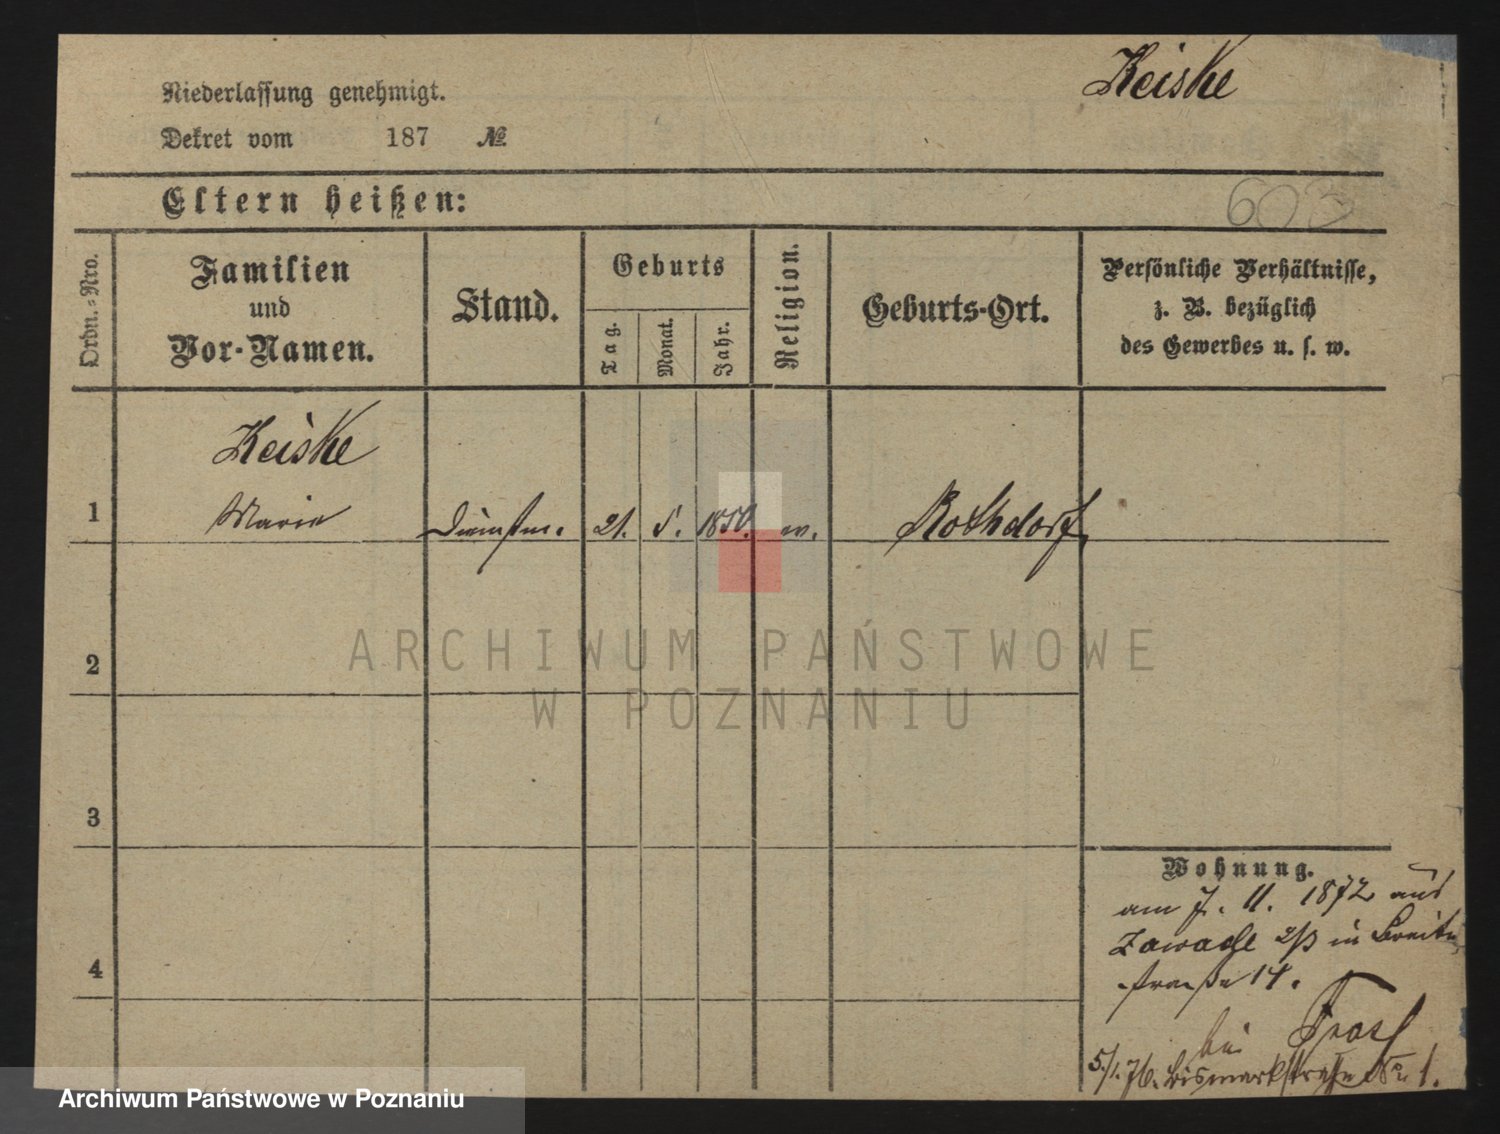 Keiske
Niederlassung genehmigt.
Dekret vom 187 №
Eltern heißen:
603
Ordn.-Nro.
Familien
und
Vor-Namen.
Stand.
Geburts
Tag.
Monat.
Jahr.
Religion.
Geburts-Ort.
Persönliche Verhältnisse,
z. B. bezüglich
des Gewerbes u. s. w.
Keiske
1 Marie 21. 5. 1850. Rothdorf
2
3
4
Wohnung.
am 7. 11. 1872 aus
Zawade 2/3 in Breite
straße 14.
bei
5/1. 76. Bismarkstraße No 1.
ARCHIWUM PAŃSTWOWE
W POZNANIU
Archiwum Państwowe w Poznaniu